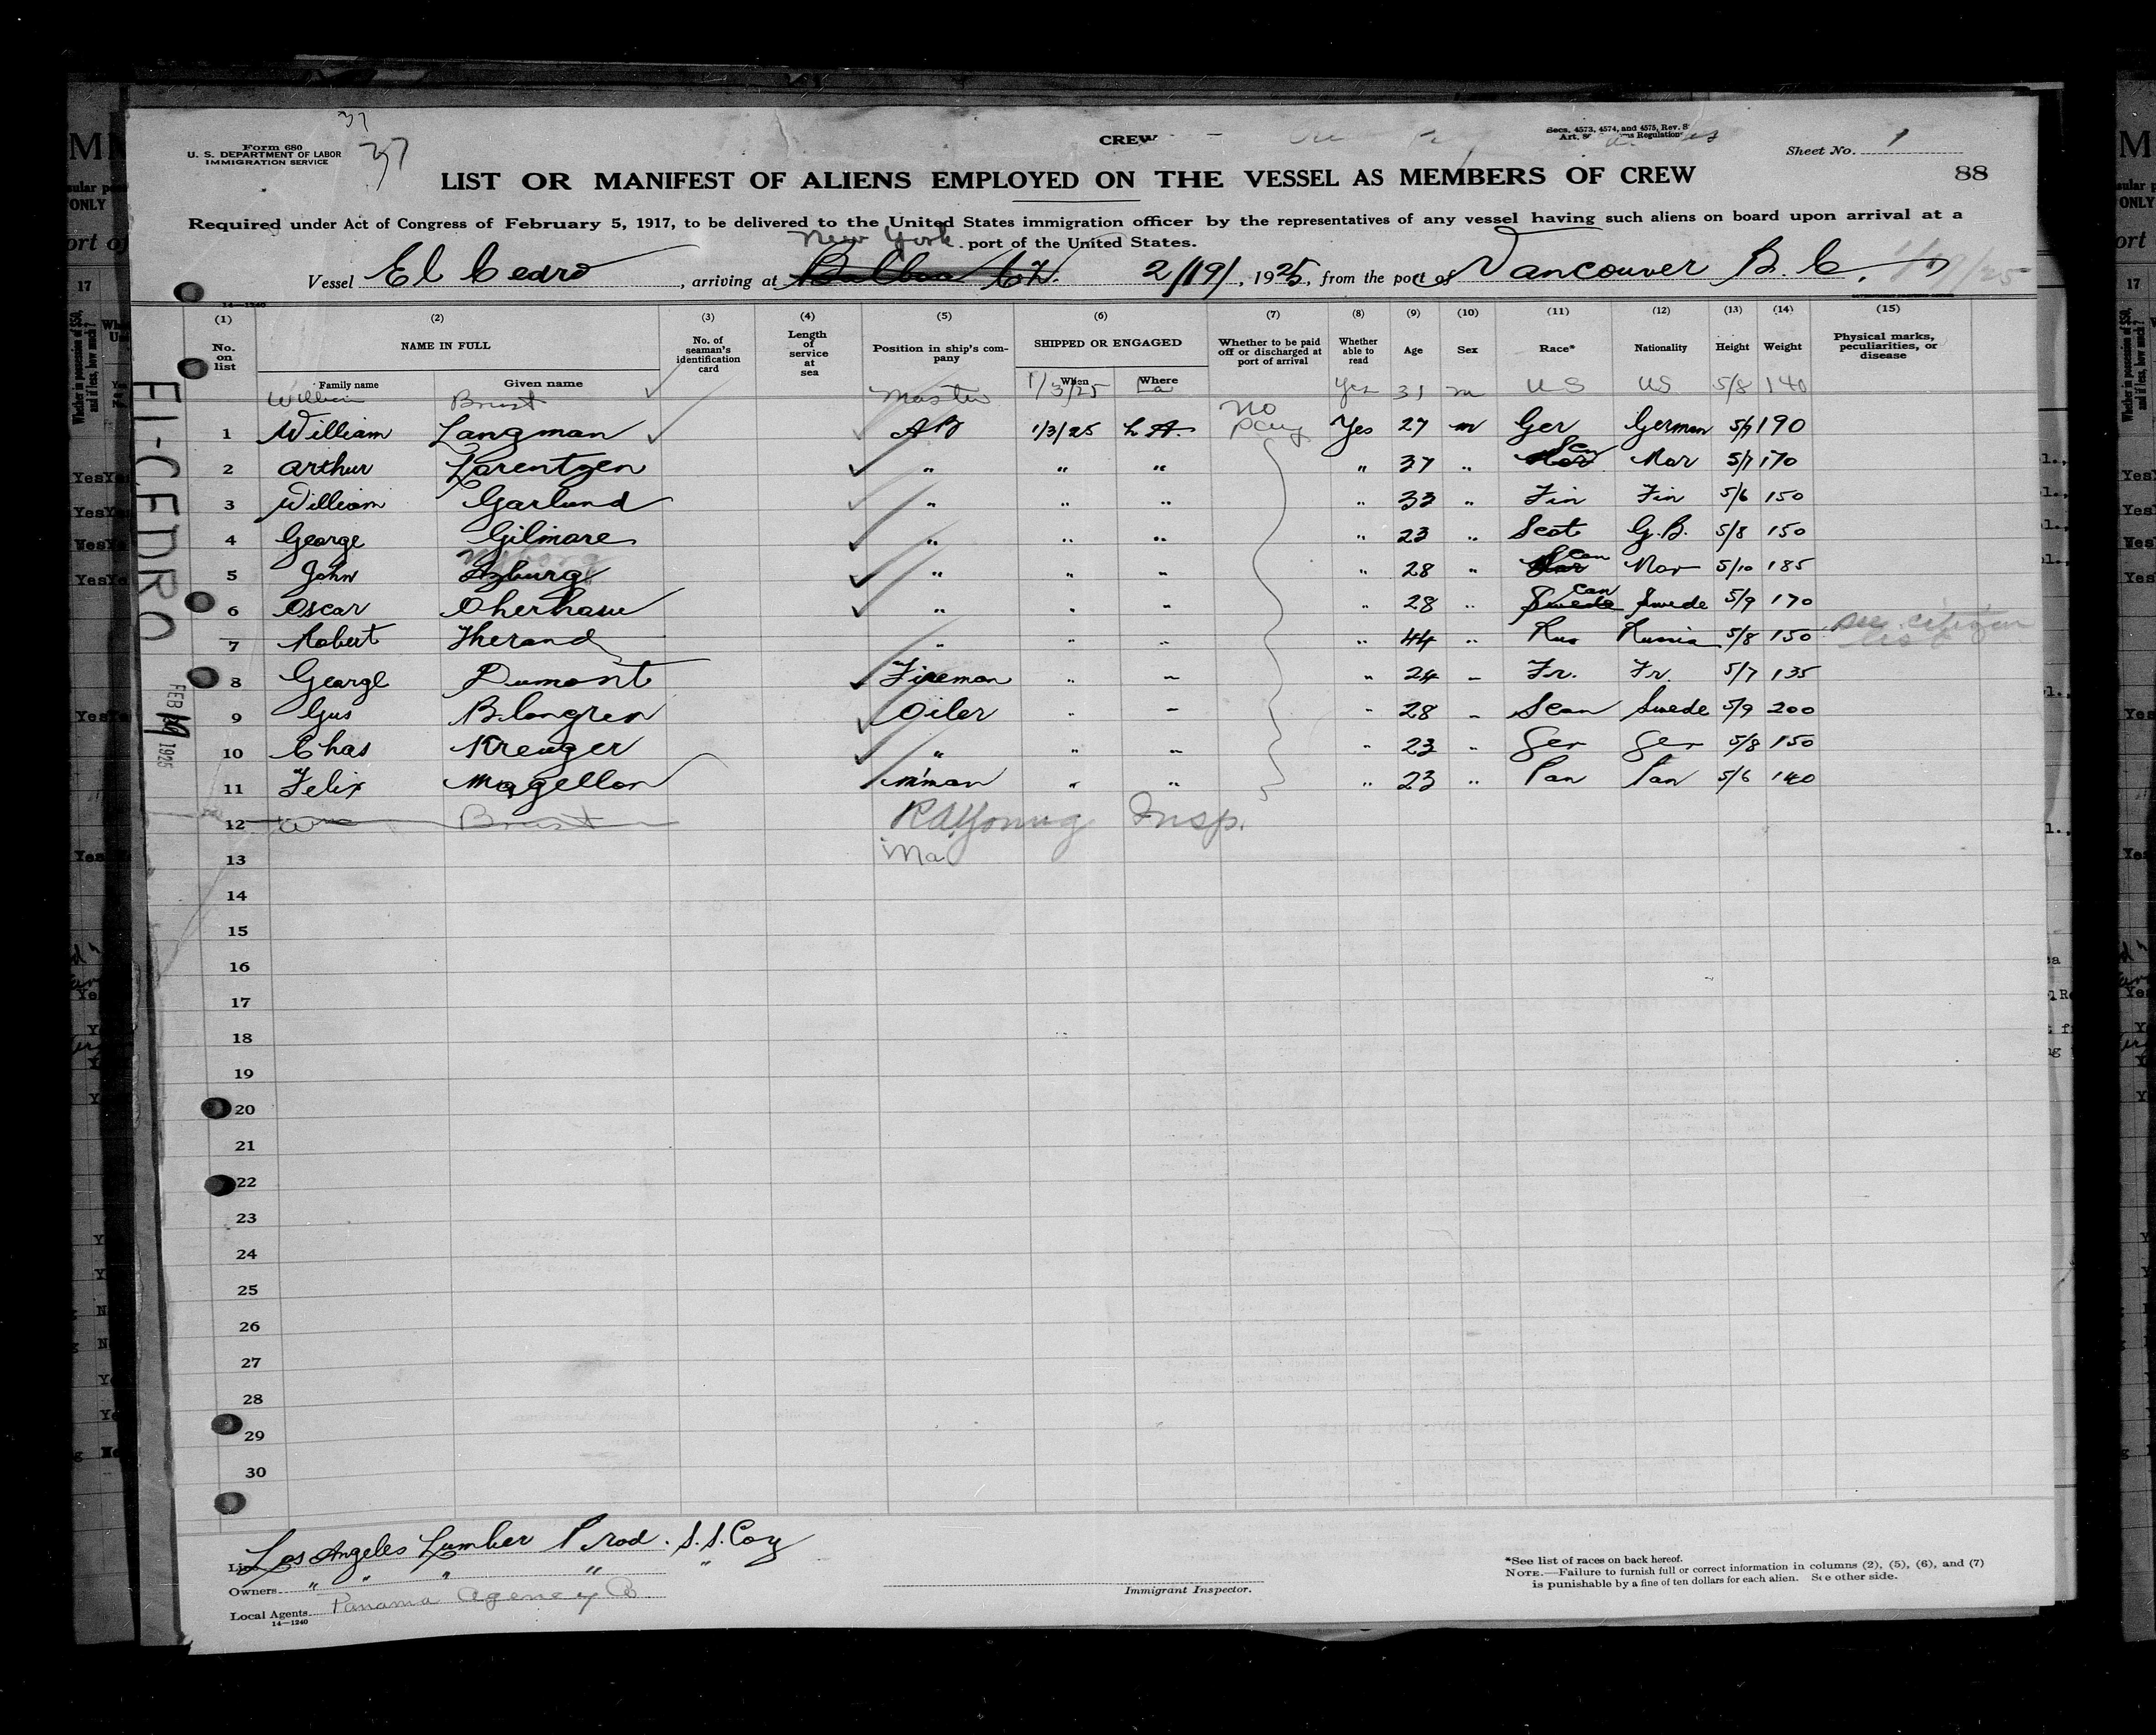 37
37
Form 680
U. S. DEPARTMENT OF LABOR
IMMIGRATION SERVICE
CREW
Secs. 4573, 4574, and 4575, Rev. S
Sheet No. 1
LIST OR MANIFEST OF ALIENS EMPLOYED ON THE VESSEL AS MEMBERS OF CREW
88
Required under Act of Congress of February 5, 1917, to be delivered to the United States immigration officer by the representatives of any vessel having such aliens on board upon arrival at a
port of the United States.
New York
Vessel El Cedro, arriving at Balboa C.Z. 2/19/, 1925, from the port of Vancouver B.C.
(1) (2) (3) (4) (5) (6) (7) (8) (9) (10) (11) (12) (13) (14) (15)
No. on list NAME IN FULL No. of seaman's identification card Length of service at sea Position in ship's company SHIPPED OR ENGAGED Whether to be paid off or discharged at port of arrival Whether able to read Age Sex Race* Nationality Height Weight Physical marks, peculiarities, or disease
Family name Given name When Where
William Brust Master 1/3/25 La Yes 31 m US US 5/8 140
1 William Langman AB 1/3/25 L.A. no pay Yes 27 m Ger German 5/9 190
2 Arthur Larentzen " " " " 37 " Scan Nor 5/7 170
3 William Garlund " " " " 33 " Fin Fin 5/6 150
4 George Gilmore " " " " 23 " Scot G.B. 5/8 150
5 John Nyborg " " " " 28 " Scan Nor 5/10 185
6 Oscar " " " " 28 " Swede Scan Swede 5/9 170
7 Robert Therand " " " " 44 " Rus Russia 5/8 150 see citizen list
8 George Dumont Fireman " " " 24 " Fr. Fr. 5/7 135
9 Gus Blomgren Oiler " " " 28 " Scan Swede 5/9 200
10 Chas Kreuger " " " " 23 " Ger Ger 5/8 150
11 Felix Magellon m'man " " " 23 " Pan Pan 5/6 140
12 Wm Brust RAYoung Insp.
13 Ma
14
15
16
17
18
19
20
21
22
23
24
25
26
27
28
29
30
EL-CEDRO
FEB 19 1925
Line Los Angeles Lumber Prod. S.S. Coy
Owners " " " " "
Local Agents Panama Agency Co
14—1240
Immigrant Inspector.
*See list of races on back hereof.
NOTE.—Failure to furnish full or correct information in columns (2), (5), (6), and (7)
is punishable by a fine of ten dollars for each alien. See other side.